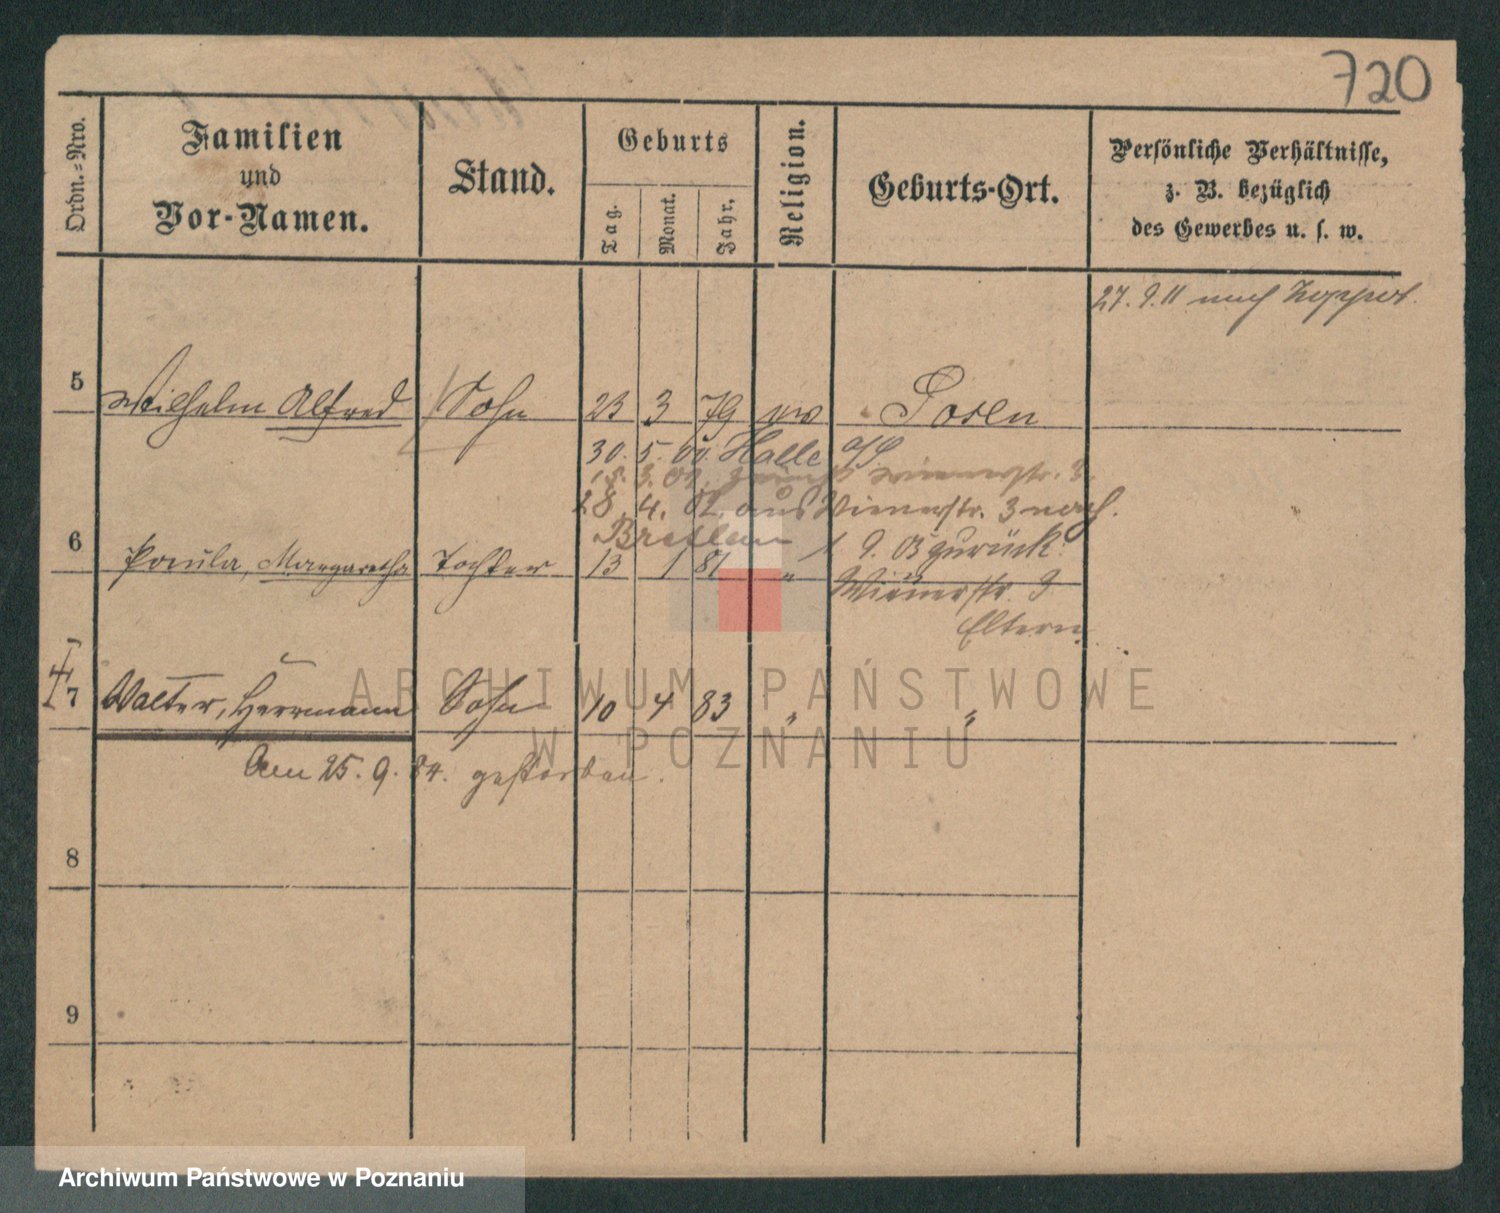 720
Ordn.-Nro.
Familien
und
Vor-Namen.
Stand.
Geburts
Tag.
Monat.
Jahr.
Religion.
Geburts-Ort.
Persönliche Verhältnisse,
z. B. bezüglich
des Gewerbes u. s. w.
27. 9. 11 nach Zoppot.
5 Wilhelm Alfred Sohn 23 3 79 Posen
30. 5. 00. Halle a/S
3. 02. Wienerstr. 3.
28. 4. 02. aus Wienerstr. 3 nach
Breslau 1. 9. 03 zurück
6 Paula, Margaretha Tochter 13 1 81 "
Wienerstr. 3
Eltern.
7 Walter, Herrmann Sohn 10 4 83 " "
Am 25. 9. 84. gestorben.
8
9
ARCHIWUM PAŃSTWOWE
W POZNANIU
Archiwum Państwowe w Poznaniu